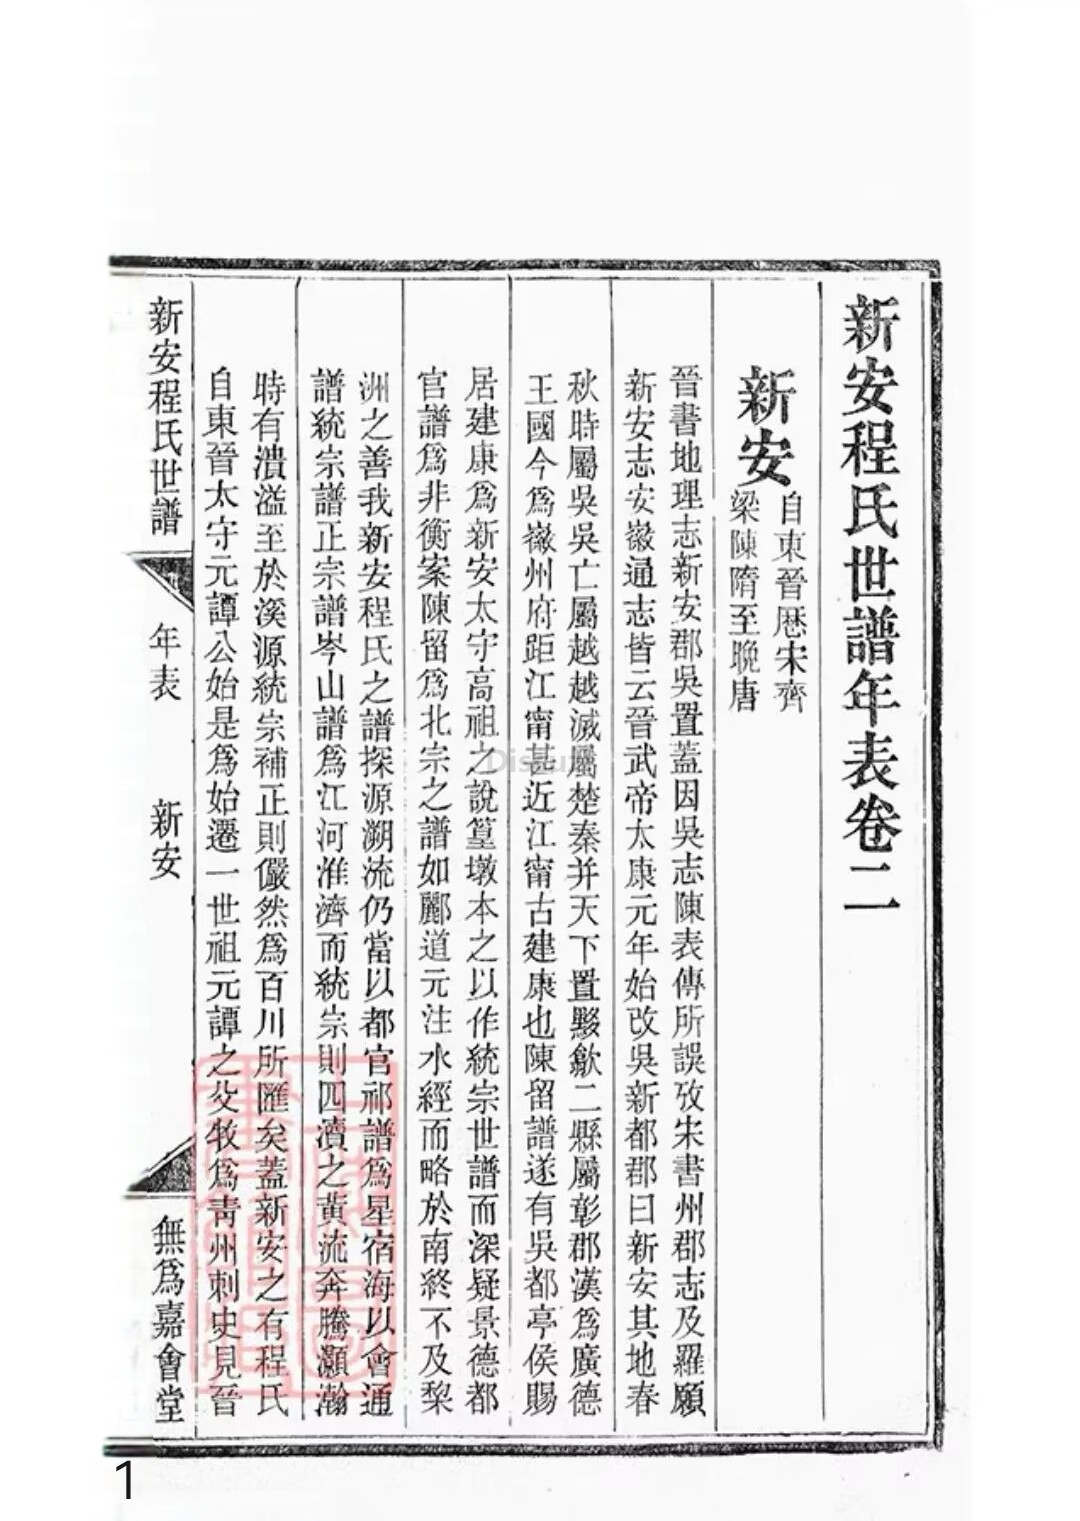 新安程氏世譜年表卷二
新安
自東晉歷宋齊
梁陳隋至晚唐
晉書地理志新安郡吳置蓋因吳志陳表傳所誤攷宋書州郡志及羅願
新安志安徽通志皆云晉武帝太康元年始改吳新都郡曰新安其地春
秋時屬吳吳亡屬越越滅屬楚秦并天下置黟歙二縣屬彰郡漢爲廣德
王國今爲徽州府距江甯甚近江甯古建康也陳留譜遂有吳都亭侯賜
居建康爲新安太守高祖之說篁墩本之以作統宗世譜而深疑景德都
官譜爲非衡案陳留爲北宗之譜如酈道元注水經而略於南終不及棃
洲之善我新安程氏之譜探源溯流仍當以都官祁譜爲星宿海以會通
譜統宗譜正宗譜岑山譜爲江河淮濟而統宗則四瀆之黃流奔騰灝瀚
時有潰溢至於溪源統宗補正則儼然爲百川所匯矣蓋新安之有程氏
自東晉太守元譚公始是爲始遷一世祖元譚之父牧爲靑州刺史見晉
新安程氏世譜 年表 新安 無爲嘉會堂
1